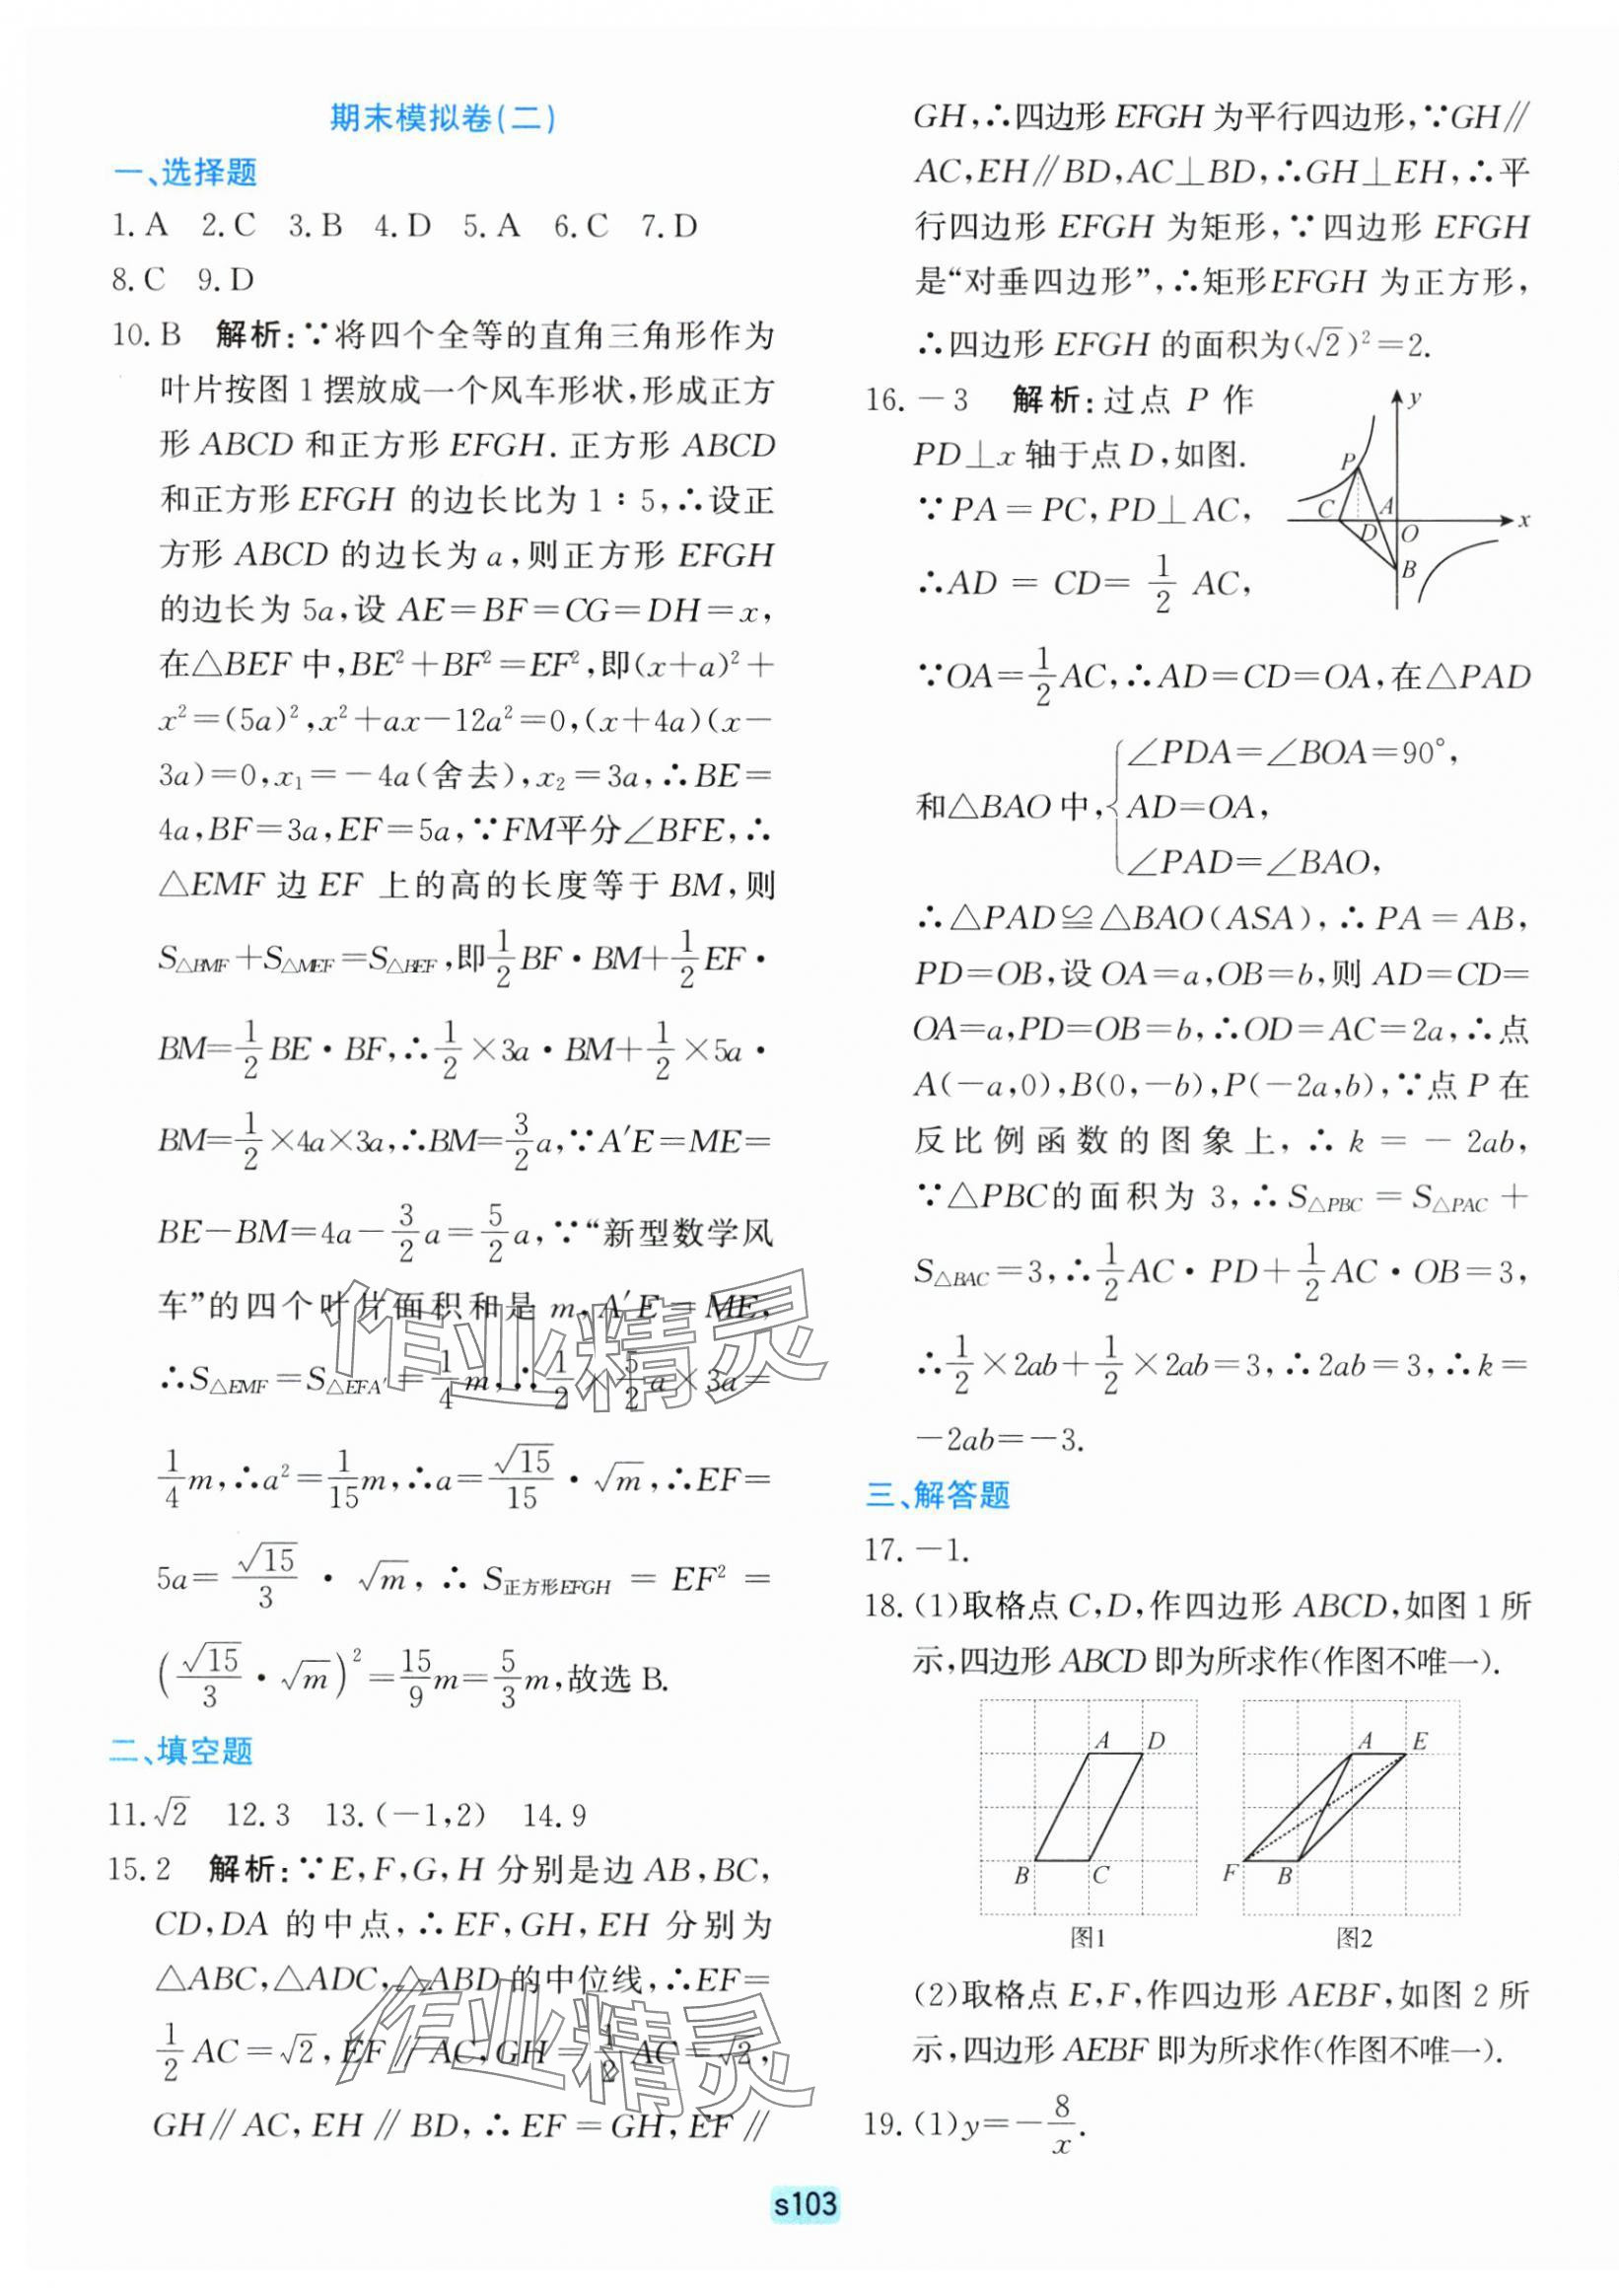 期末模拟卷(二)
一、选择题
1. A 2. C 3. B 4. D 5. A 6. C 7. D
8. C 9. D
10. B 解析:∵将四个全等的直角三角形作为
叶片按图 1 摆放成一个风车形状,形成正方
形 ABCD 和正方形 EFGH. 正方形 ABCD
和正方形 EFGH 的边长比为 1∶5,∴设正
方形 ABCD 的边长为 a,则正方形 EFGH
的边长为 5a,设 AE=BF=CG=DH=x,
在△BEF 中,BE²+BF²=EF²,即(x+a)²+
x²=(5a)²,x²+ax-12a²=0,(x+4a)(x-
3a)=0,x₁=-4a(舍去),x₂=3a,∴BE=
4a,BF=3a,EF=5a,∵FM平分∠BFE,∴
△EMF 边 EF 上的高的长度等于 BM,则
S△BMF+S△MEF=S△BEF,即1/2 BF·BM+1/2 EF·
BM=1/2 BE·BF,∴1/2×3a·BM+1/2×5a·
BM=1/2×4a×3a,∴BM=3/2 a,∵A′E=ME=
BE-BM=4a-3/2 a=5/2 a,∵“新型数学风
车”的四个叶片面积和是 m,A′E=ME,
∴S△EMF=S△EFA′=1/4 m,∴1/2×5/2 a×3a=
1/4 m,∴a²=1/15 m,∴a=√15/15·√m,∴EF=
5a=√15/3·√m,∴S正方形EFGH=EF²=
(√15/3·√m)²=15/9 m=5/3 m,故选 B.
二、填空题
11. √2 12. 3 13. (-1,2) 14. 9
15. 2 解析:∵E,F,G,H 分别是边 AB,BC,
CD,DA 的中点,∴EF,GH,EH 分别为
△ABC,△ADC,△ABD的中位线,∴EF=
1/2 AC=√2,EF∥AC,GH=1/2 AC=√2,
GH∥AC,EH∥BD,∴EF=GH,EF∥
GH,∴四边形 EFGH 为平行四边形,∵GH∥
AC,EH∥BD,AC⊥BD,∴GH⊥EH,∴平
行四边形 EFGH 为矩形,∵四边形 EFGH
是“对垂四边形”,∴矩形EFGH 为正方形,
∴四边形 EFGH 的面积为(√2)²=2.
16. -3 解析:过点 P 作
PD⊥x 轴于点 D,如图.
∵PA=PC,PD⊥AC,
∴AD=CD=1/2 AC,
y
P
C
A
D
O
x
B
∵OA=1/2 AC,∴AD=CD=OA,在△PAD
∠PDA=∠BOA=90°,
和△BAO 中,{AD=OA,
∠PAD=∠BAO,
∴△PAD≌△BAO(ASA),∴PA=AB,
PD=OB,设 OA=a,OB=b,则 AD=CD=
OA=a,PD=OB=b,∴OD=AC=2a,∴点
A(-a,0),B(0,-b),P(-2a,b),∵点 P 在
反比例函数的图象上,∴k=-2ab,
∵△PBC的面积为 3,∴S△PBC=S△PAC+
S△BAC=3,∴1/2 AC·PD+1/2 AC·OB=3,
∴1/2×2ab+1/2×2ab=3,∴2ab=3,∴k=
-2ab=-3.
三、解答题
17. -1.
18. (1)取格点 C,D,作四边形 ABCD,如图 1 所
示,四边形 ABCD 即为所求作(作图不唯一).
A D
B C
图1
A E
F B
图2
(2)取格点 E,F,作四边形 AEBF,如图 2 所
示,四边形 AEBF 即为所求作(作图不唯一).
19. (1)y=-8/x.
s103
作业精灵
作业精灵